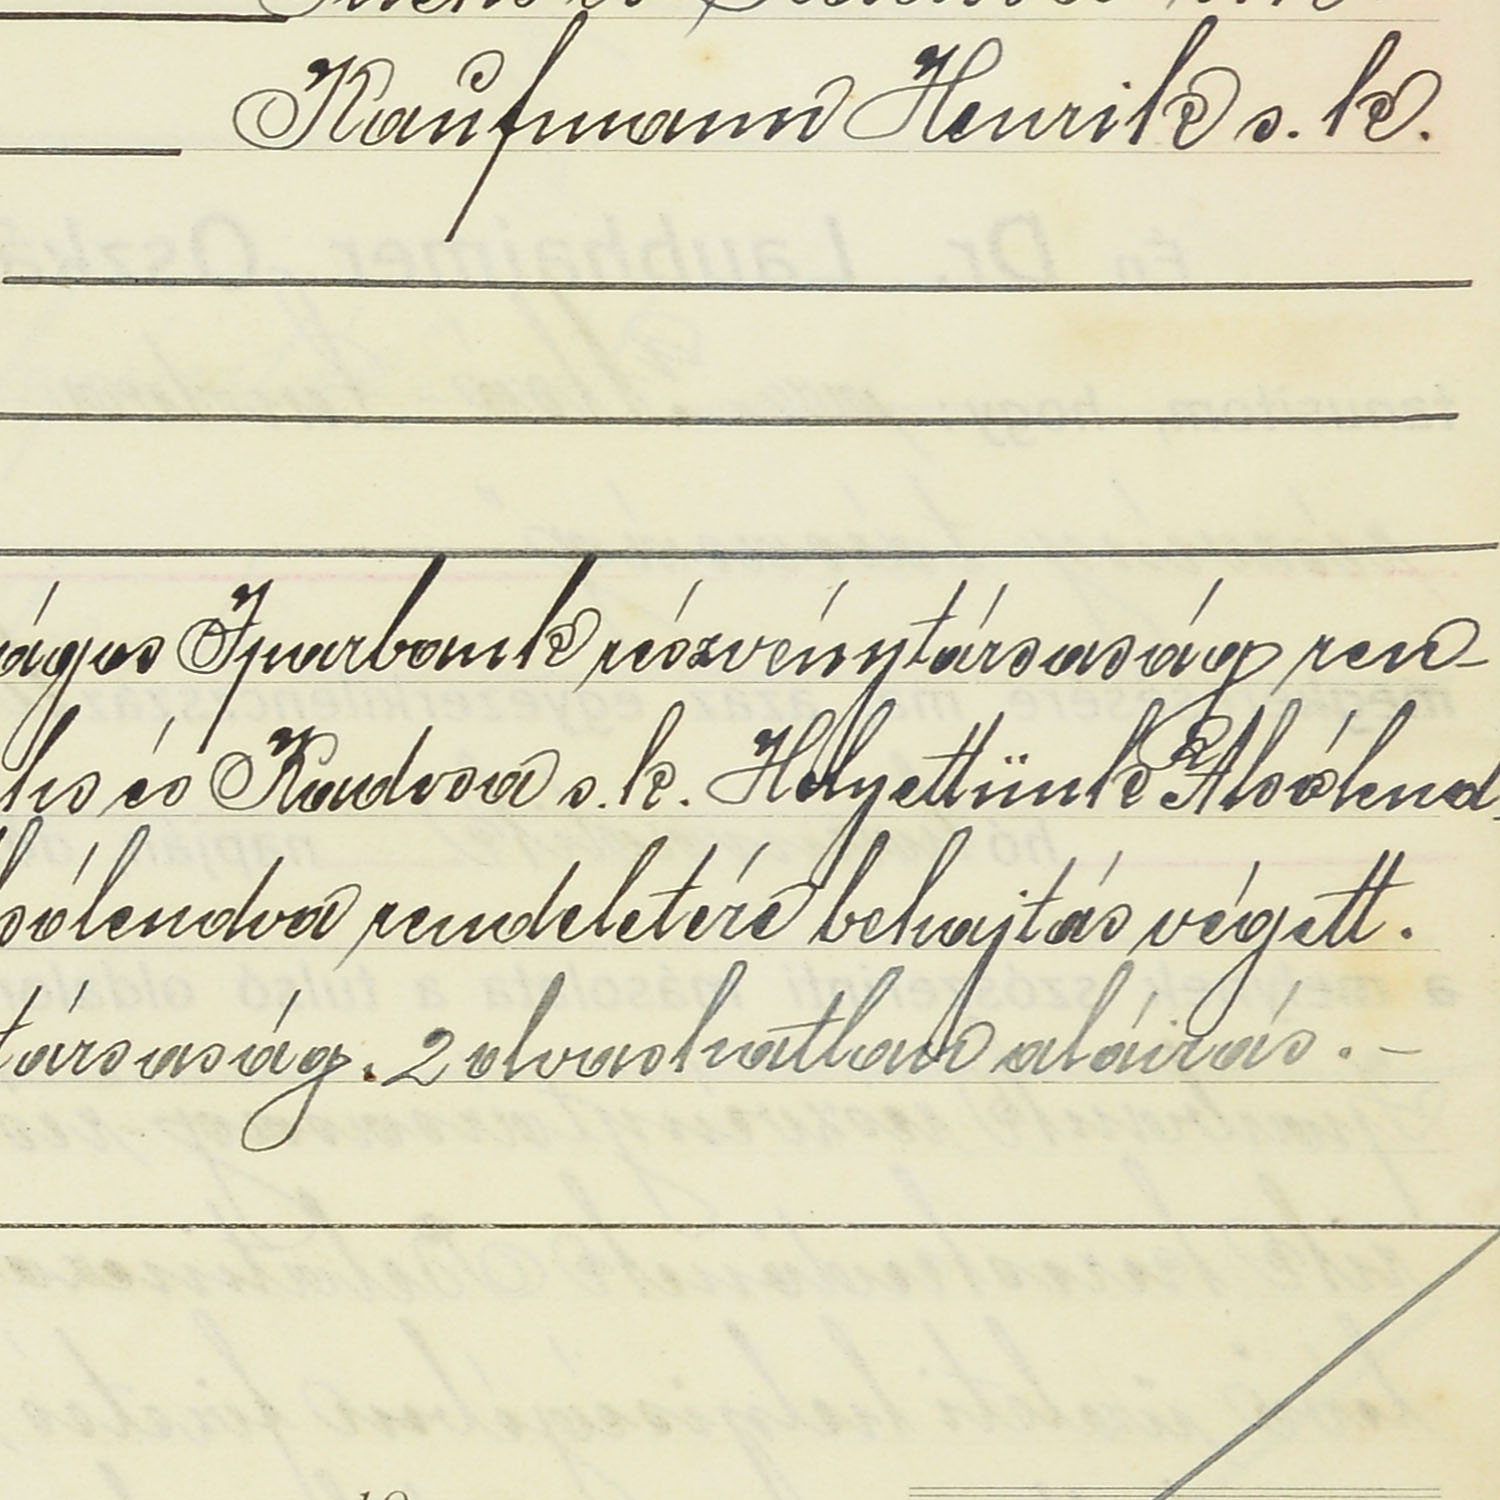 Kaufmann Henrik s. k.
ágos Iparbank részvénytársaság ren-
és Kadosa s. k. Helyettünk Alsólend-
sólendva rendeletére behajtás végett.
társaság. 2 olvashatlan aláirás. -